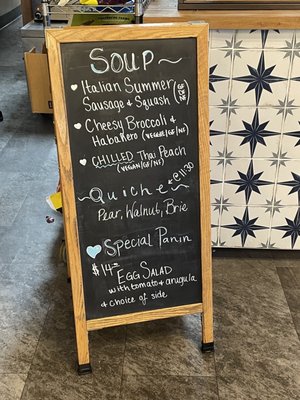 SOUP
Italian Summer GF DF NF
Sausage & Squash
Cheesy Broccoli &
Habanero (VEGGIE/GF/NF)
CHILLED Thai Peach
(VEGAN/GF/NF)
Quiche @11:30
Pear, Walnut, Brie
Special Panin
$14 EGG SALAD
with tomato & arugula
& choice of side